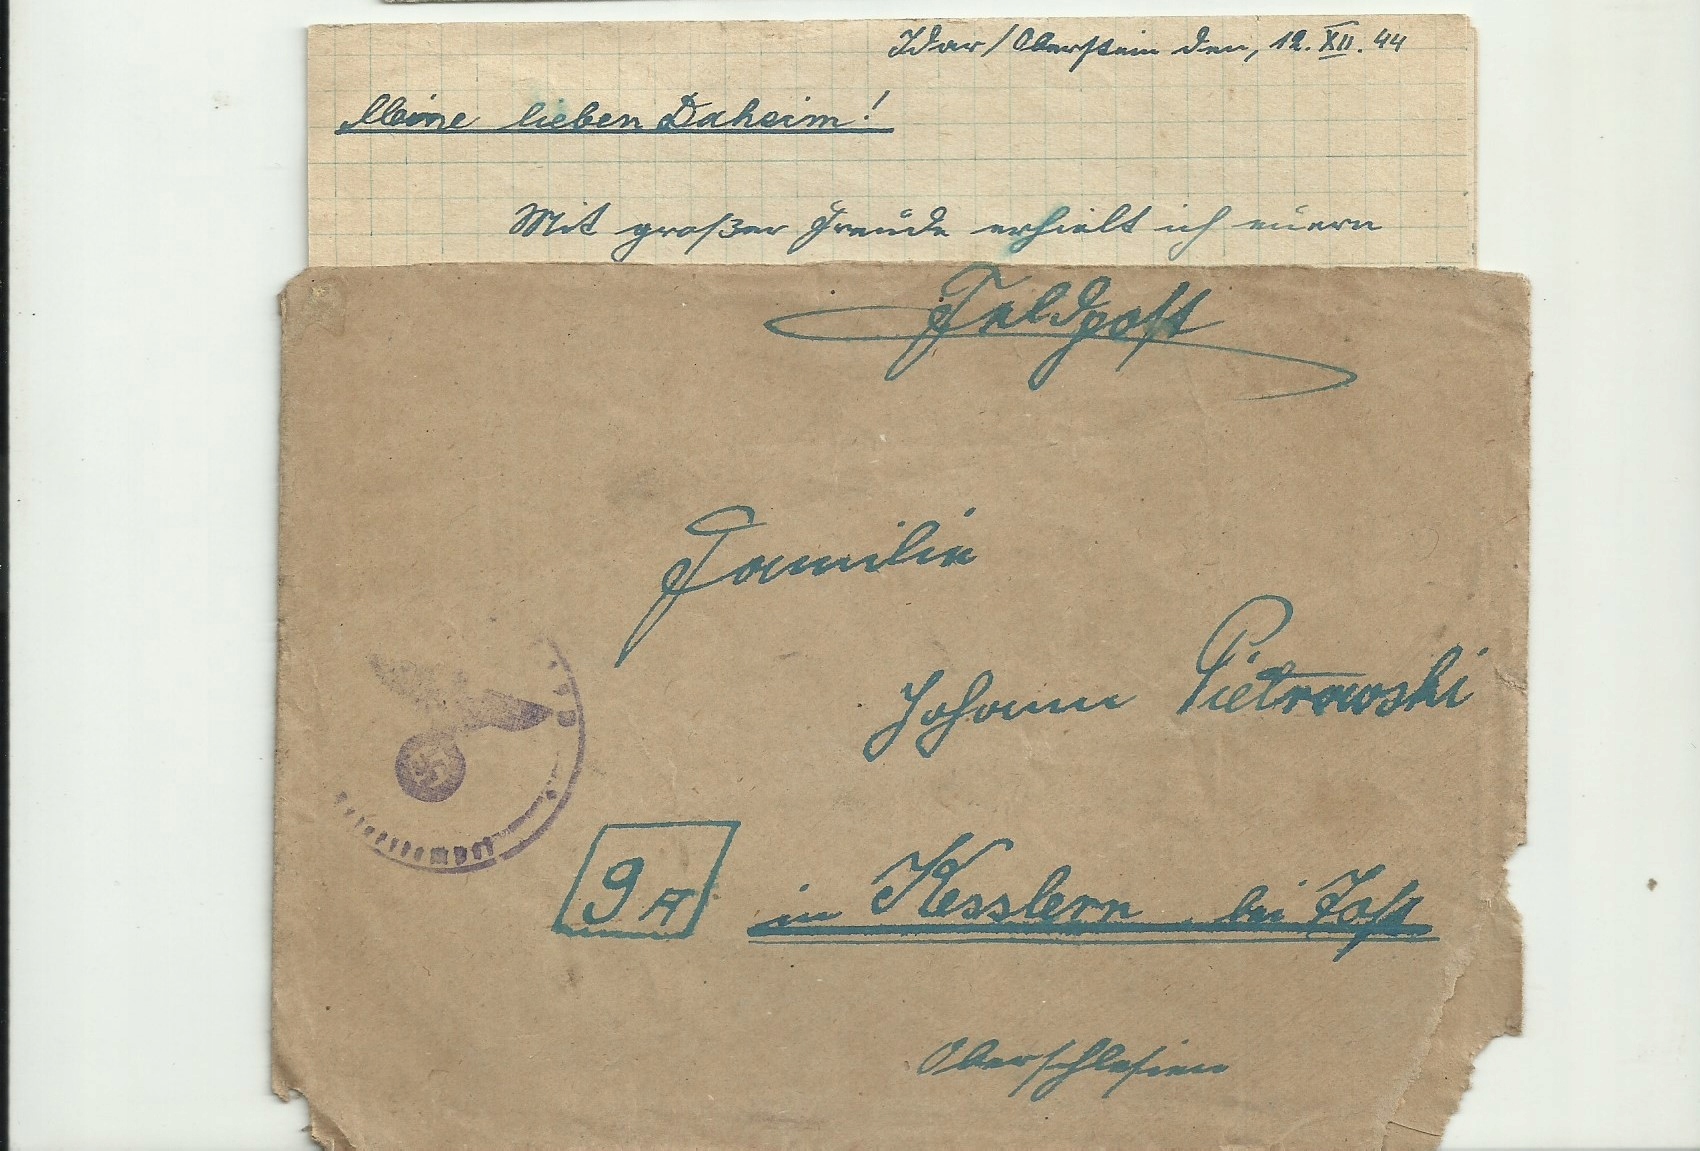 Idar/Oberstein den, 12. XII. 44
Meine lieben Daheim!
Mit großer Freude erhielt ich euern
Feldpost
Familie
Johann Pietrowski
9A in Kesslern bei Tost
Oberschlesien